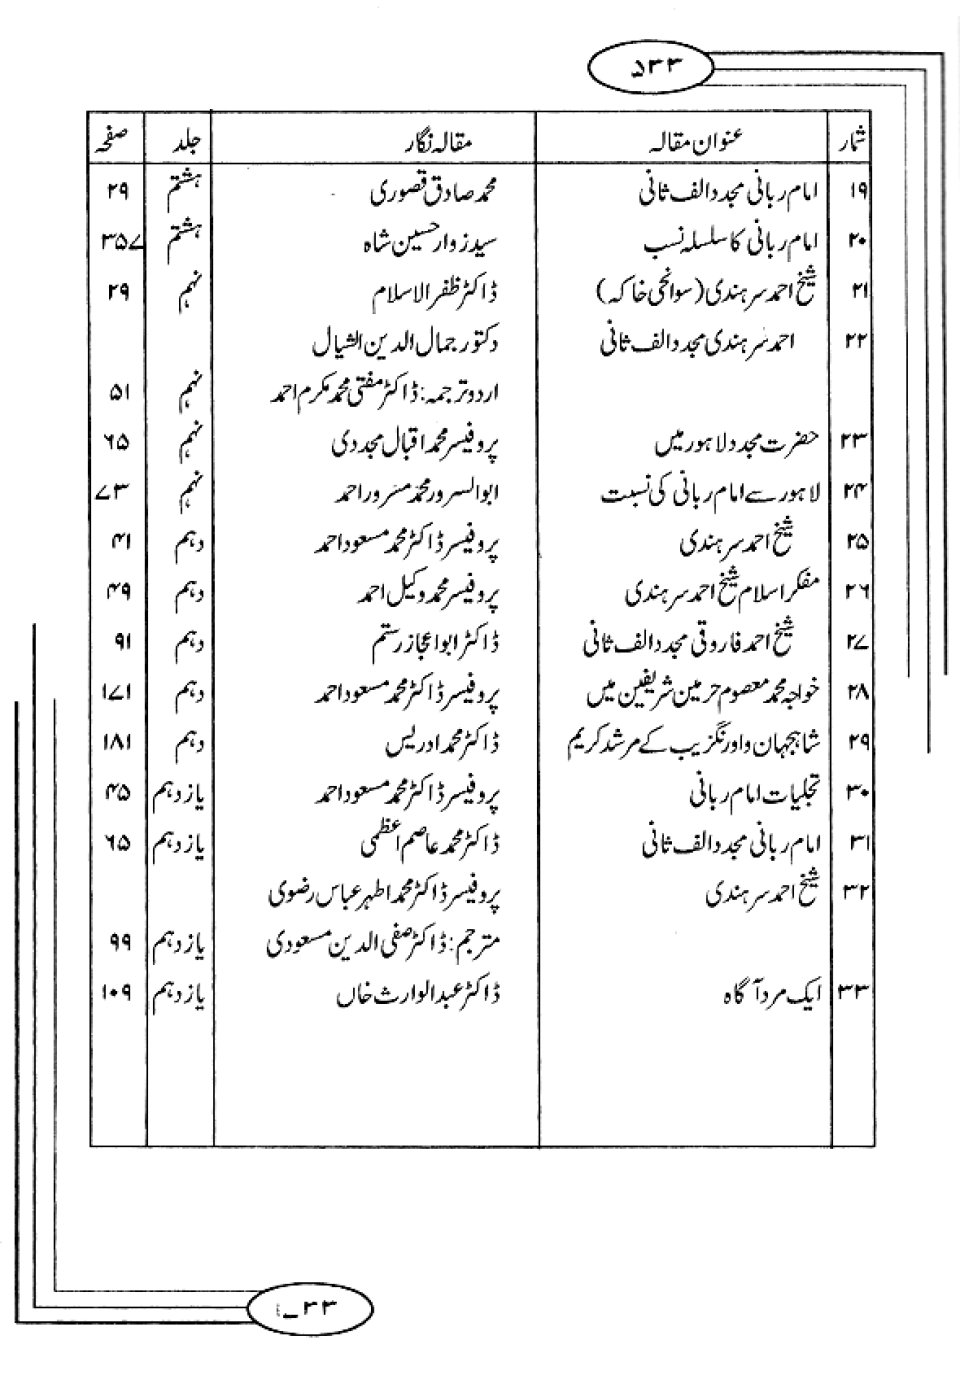 ۵۳۳
شمار عنوان مقالہ مقالہ نگار جلد صفحہ
۱۹ امام ربانی مجدد الف ثانی محمد صادق قصوری ہشتم ۲۹
۲۰ امام ربانی کا سلسلہ نسب سید زوار حسین شاہ ہشتم ۳۵۷
۲۱ شیخ احمد سرہندی (سوانحی خاکہ) ڈاکٹر ظفر الاسلام نہم ۲۹
۲۲ احمد سرہندی مجدد الف ثانی دکتور جمال الدین الشیال
اردو ترجمہ: ڈاکٹر مفتی محمد مکرم احمد نہم ۵۱
۲۳ حضرت مجدد لاہور میں پروفیسر محمد اقبال مجددی نہم ۶۵
۲۴ لاہور سے امام ربانی کی نسبت ابوالسرور محمد مسرور احمد نہم ۷۳
۲۵ شیخ احمد سرہندی پروفیسر ڈاکٹر محمد مسعود احمد دہم ۴۱
۲۶ مفکر اسلام شیخ احمد سرہندی پروفیسر محمد وکیل احمد دہم ۴۹
۲۷ شیخ احمد فاروقی مجدد الف ثانی ڈاکٹر ابو اعجاز رستم دہم ۹۱
۲۸ خواجہ محمد معصوم حرمین شریفین میں پروفیسر ڈاکٹر محمد مسعود احمد دہم ۱۷۱
۲۹ شاہجہان و اورنگزیب کے مرشد کریم ڈاکٹر محمد ادریس دہم ۱۸۱
۳۰ تجلیات امام ربانی پروفیسر ڈاکٹر محمد مسعود احمد یازدہم ۴۵
۳۱ امام ربانی مجدد الف ثانی ڈاکٹر محمد عاصم اعظمی یازدہم ۶۵
۳۲ شیخ احمد سرہندی پروفیسر ڈاکٹر محمد اطہر عباس رضوی
مترجم: ڈاکٹر صفی الدین مسعودی یازدہم ۹۹
۳۳ ایک مرد آگاہ ڈاکٹر عبدالوارث خاں یازدہم ۱۰۹